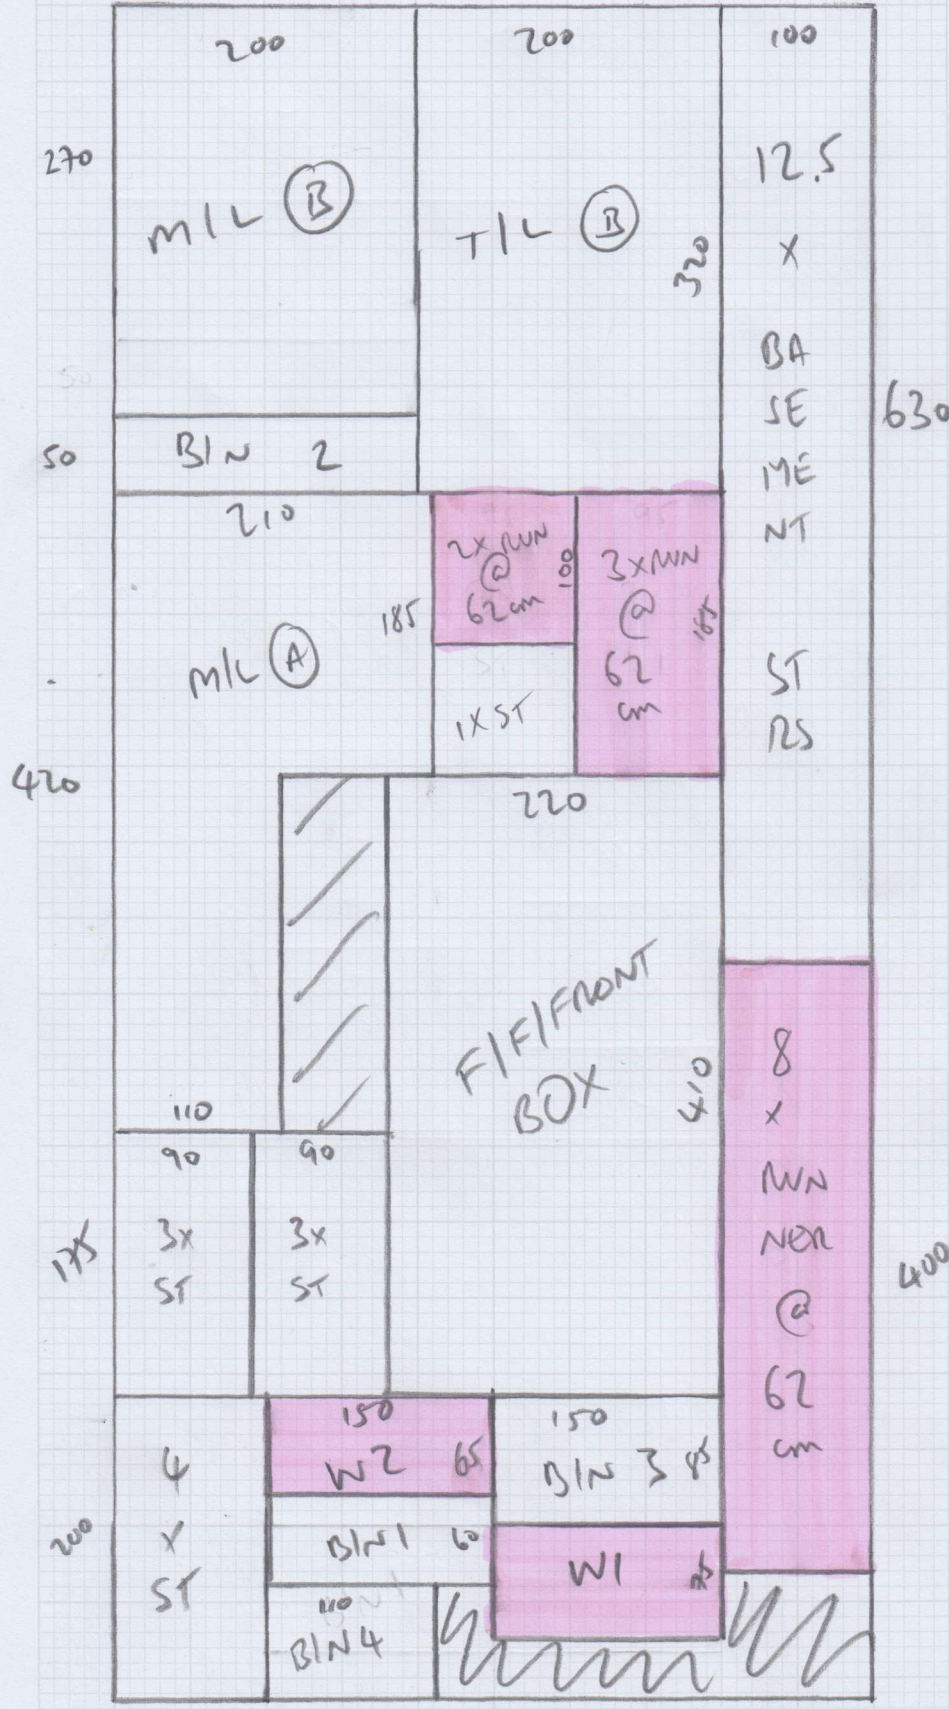 200
200
100
270
M/L (B)
T/L (B)
320
12.5
X
BA
SE
ME
NT
ST
RS
630
50
BIN 2
210
2X RUN
@
62cm
100
3XRUN
@
62
cm
185
185
M/L (A)
1X ST
420
220
F/F/FRONT
BOX
410
110
90
90
175
3x
ST
3x
ST
8
X
RUN
NER
@
62
cm
400
150
W2
65
150
BIN 3
85
4
X
ST
200
BIN 1
60
W1
75
110
BIN 4